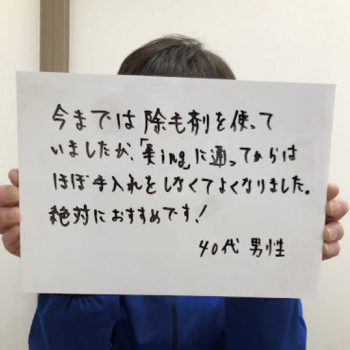 今までは除毛剤を使って
いましたが、「美ing」に通ってからは
ほぼ手入れをしなくてよくなりました。
絶対におすすめです！
40代 男性